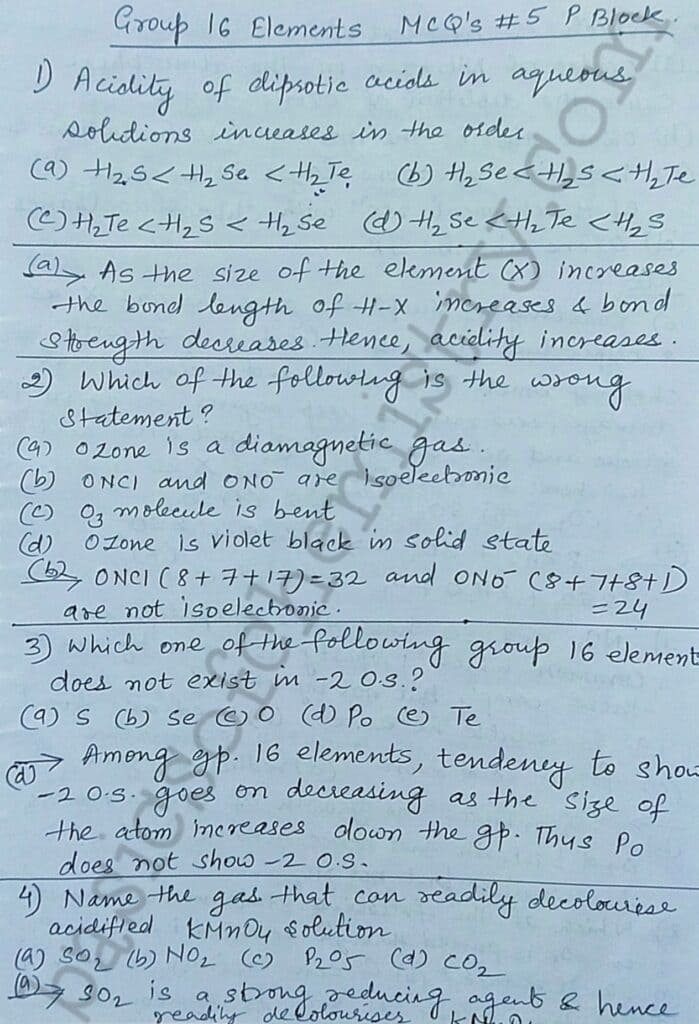 Group 16 Elements MCQ's #5 P Block.
1) Acidity of diprotic acids in aqueous
solutions increases in the order
(a) H₂S < H₂Se < H₂Te (b) H₂Se < H₂S < H₂Te
(c) H₂Te < H₂S < H₂Se (d) H₂Se < H₂Te < H₂S
(a)→ As the size of the element (X) increases
the bond length of H-X increases & bond
strength decreases. Hence, acidity increases.
2) Which of the following is the wrong
statement?
(a) Ozone is a diamagnetic gas.
(b) ONCl and ONO⁻ are isoelectronic
(c) O₃ molecule is bent
(d) Ozone is violet black in solid state
(b)→ ONCl (8+7+17)=32 and ONO⁻ (8+7+8+1)
are not isoelectronic. =24
3) Which one of the following group 16 element
does not exist in -2 O.S.?
(a) S (b) Se (c) O (d) Po (e) Te
(d)→ Among gp. 16 elements, tendency to show
-2 O.S. goes on decreasing as the size of
the atom increases down the gp. Thus Po
does not show -2 O.S.
4) Name the gas that can readily decolourise
acidified KMnO₄ solution
(a) SO₂ (b) NO₂ (c) P₂O₅ (d) CO₂
(a)→ SO₂ is a strong reducing agent & hence
readily decolourises KMnO₄
basicsofchemistry.com